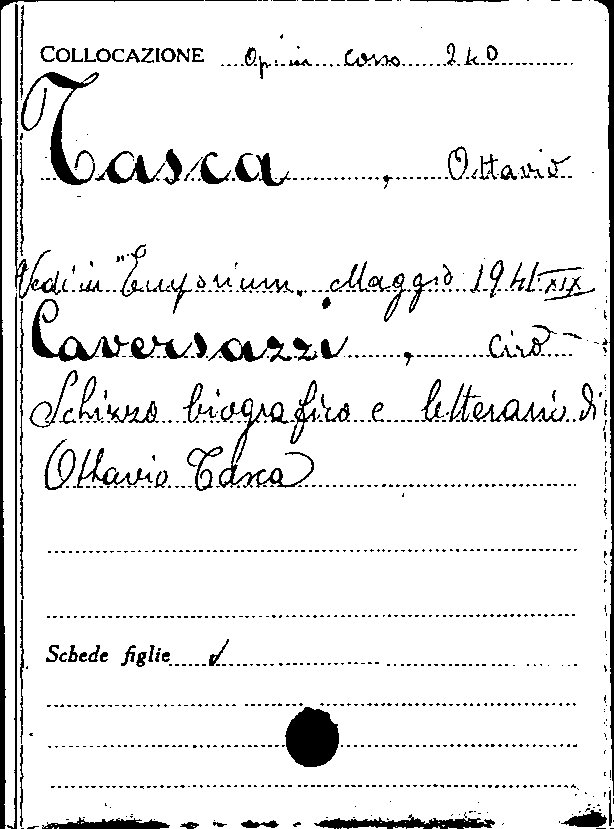 COLLOCAZIONE Op. in corso 240
Tasca, Ottavio
Vedi in "Emporium" Maggio 1941 XIX
Caversazzi, Ciro
Schizzo biografico e letterario di
Ottavio Tasca
Schede figlie ✓